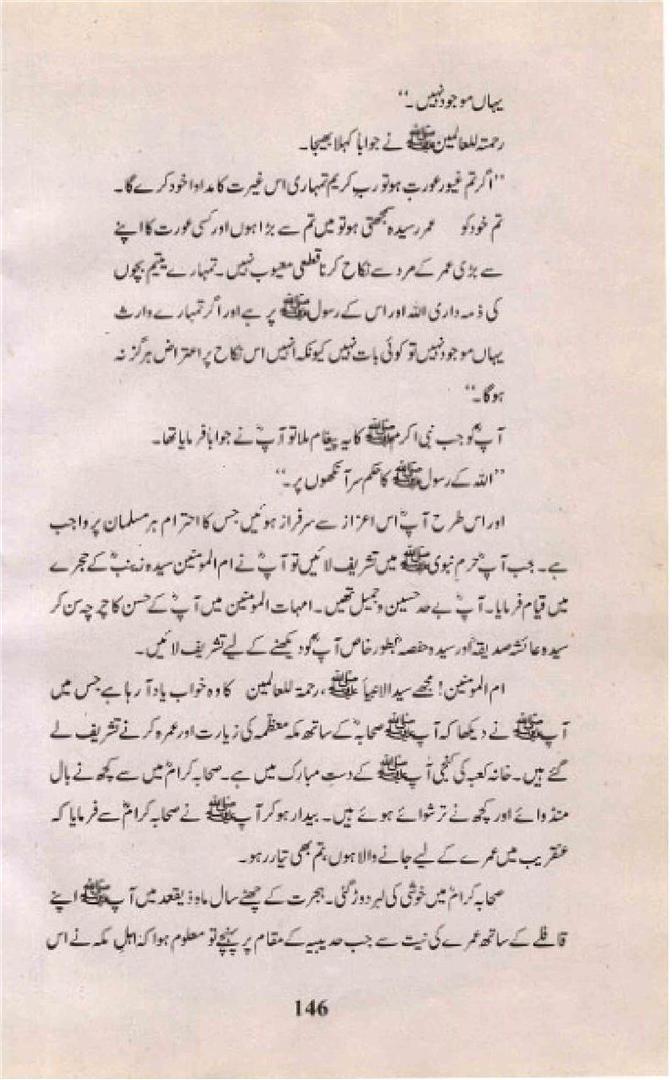 یہاں موجود نہیں۔‘‘
رحمتہ للعالمینﷺ نے جواباً کہلا بھیجا۔
’’اگر تم غیور عورت ہو تو رب کریم تمہاری اس غیرت کا مداوا خود کرے گا۔
تم خود کو عمر رسیدہ سمجھتی ہو تو میں تم سے بڑا ہوں اور کسی عورت کا اپنے
سے بڑی عمر کے مرد سے نکاح کرنا قطعی معیوب نہیں۔ تمہارے یتیم بچوں
کی ذمہ داری اللہ اور اس کے رسولﷺ پر ہے اور اگر تمہارے وارث
یہاں موجود نہیں تو کوئی بات نہیں کیونکہ انہیں اس نکاح پر اعتراض ہرگز نہ
ہوگا۔‘‘
آپؓ کو جب نبی اکرمﷺ کا یہ پیغام ملا تو آپؓ نے جواباً فرمایا تھا۔
’’اللہ کے رسولﷺ کا حکم سر آنکھوں پر۔‘‘
اور اس طرح آپؓ اس اعزاز سے سرفراز ہوئیں جس کا احترام ہر مسلمان پر واجب
ہے۔ جب آپؓ حرم نبویﷺ میں تشریف لائیں تو آپؓ نے ام المومنین سیدہ زینبؓ کے حجرے
میں قیام فرمایا۔ آپؓ بے حد حسین و جمیل تھیں۔ امہات المومنین میں آپؓ کے حسن کا چرچہ سن کر
سیدہ عائشہ صدیقہؓ اور سیدہ حفصہؓ بطور خاص آپؓ کو دیکھنے کے لیے تشریف لائیں۔
ام المومنین! مجھے سید الانبیاﷺ، رحمتہ للعالمین کا وہ خواب یاد آ رہا ہے جس میں
آپﷺ نے دیکھا کہ آپﷺ صحابہؓ کے ساتھ مکہ معظمہ کی زیارت اور عمرہ کرنے تشریف لے
گئے ہیں۔ خانہ کعبہ کی کنجی آپﷺ کے دست مبارک میں ہے۔ صحابہ کرامؓ میں سے کچھ نے بال
منڈوائے اور کچھ نے ترشوائے ہوئے ہیں۔ بیدار ہو کر آپﷺ نے صحابہ کرامؓ سے فرمایا کہ
عنقریب میں عمرے کے لیے جانے والا ہوں، تم بھی تیار رہو۔
صحابہ کرامؓ میں خوشی کی لہر دوڑ گئی۔ ہجرت کے چھٹے سال ماہ ذیقعد میں آپﷺ اپنے
قافلے کے ساتھ عمرے کی نیت سے جب حدیبیہ کے مقام پر پہنچے تو معلوم ہوا کہ اہل مکہ نے اس
146